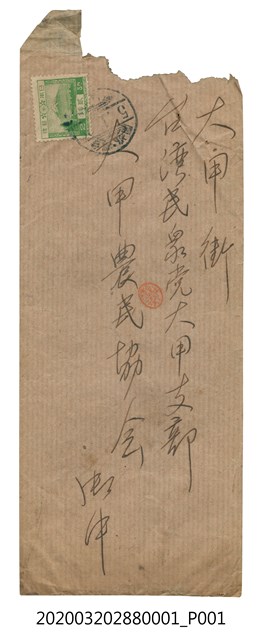 大甲街
台湾民眾党大甲支部
大甲農民協会
御中
202003202880001_P001